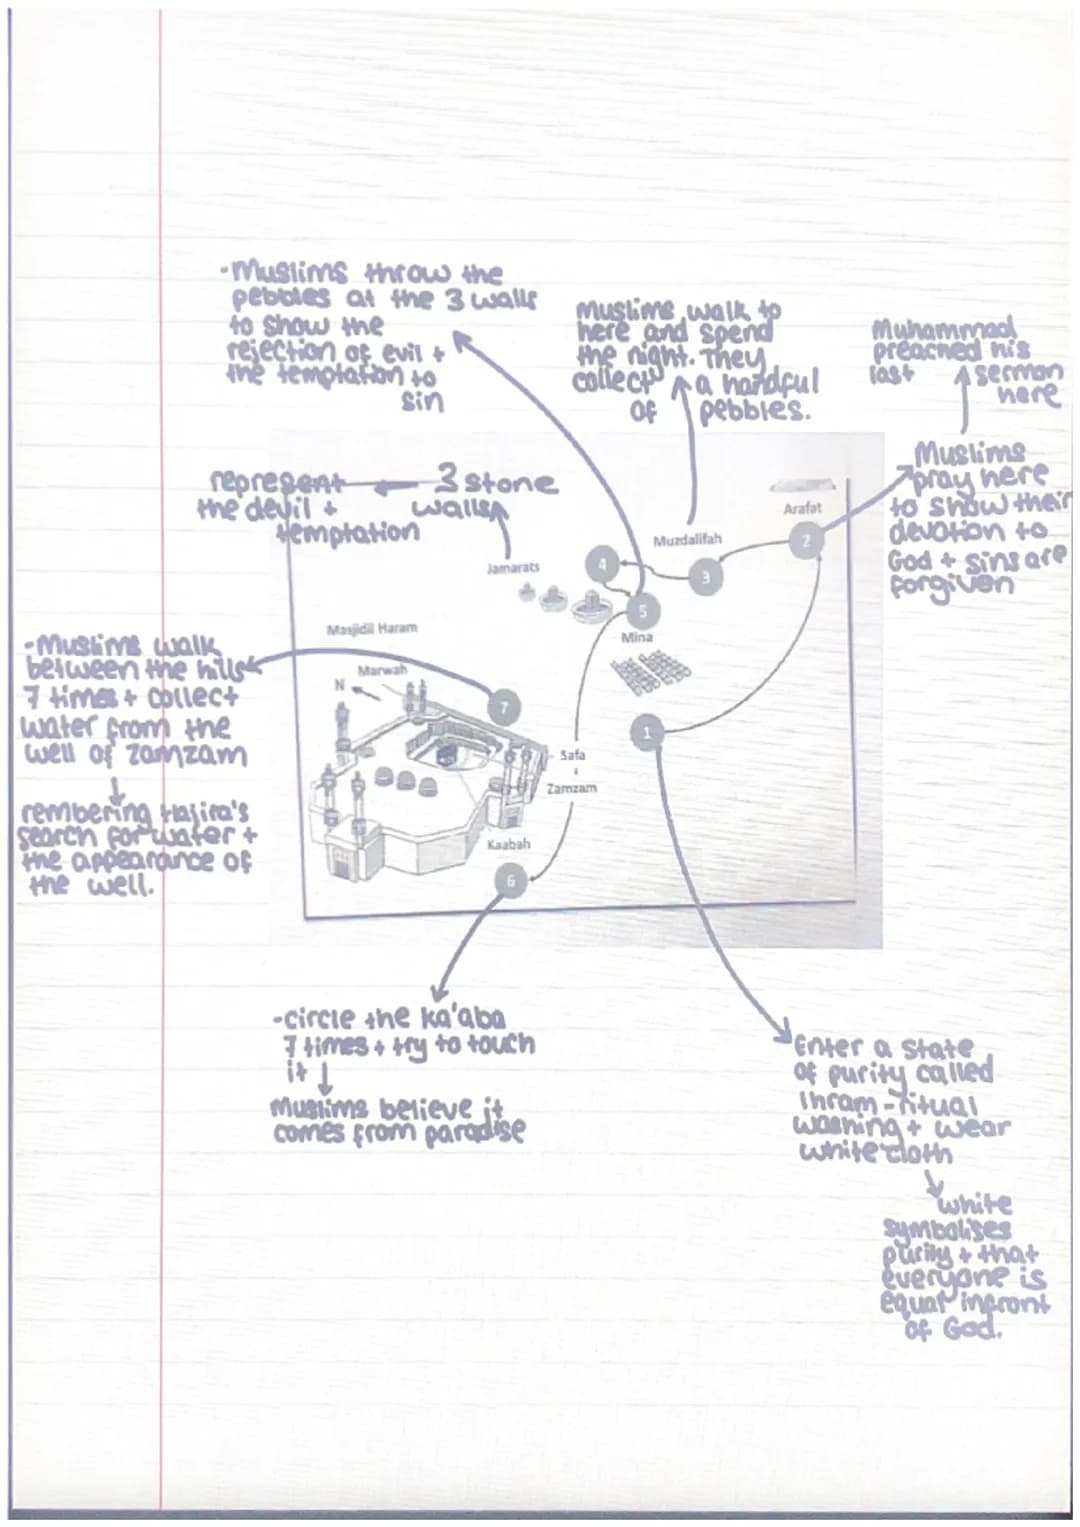 -Muslims throw the
pebbles at the 3 walls
to show the
rejection of evil +
the temptation to
sin
Muslims walk to
here and spend
the night. They
collect a handful
of pebbles.
Muhammad
preached his
last sermon
here
Muslims
pray here
to show their
devotion to
God + sins are
forgiven
3 stone
walls
represent
the devil +
temptation
Arafat
2
Muzdalifah
3
4
Jamarats
5
Mina
Masjidil Haram
Marwah
N
7
1
Safa
+
Zamzam
Kaabah
6
-Muslims walk
between the hills
7 times + collect
water from the
well of zamzam
rembering Hajira's
search for water +
the appearance of
the well.
-circle the ka'aba
7 times + try to touch
it
Muslims believe it
comes from paradise
Enter a state
of purity called
Ihram - ritual
washing + wear
white cloth
white
symbolises
purity + that
everyone is
equal infront
of God.